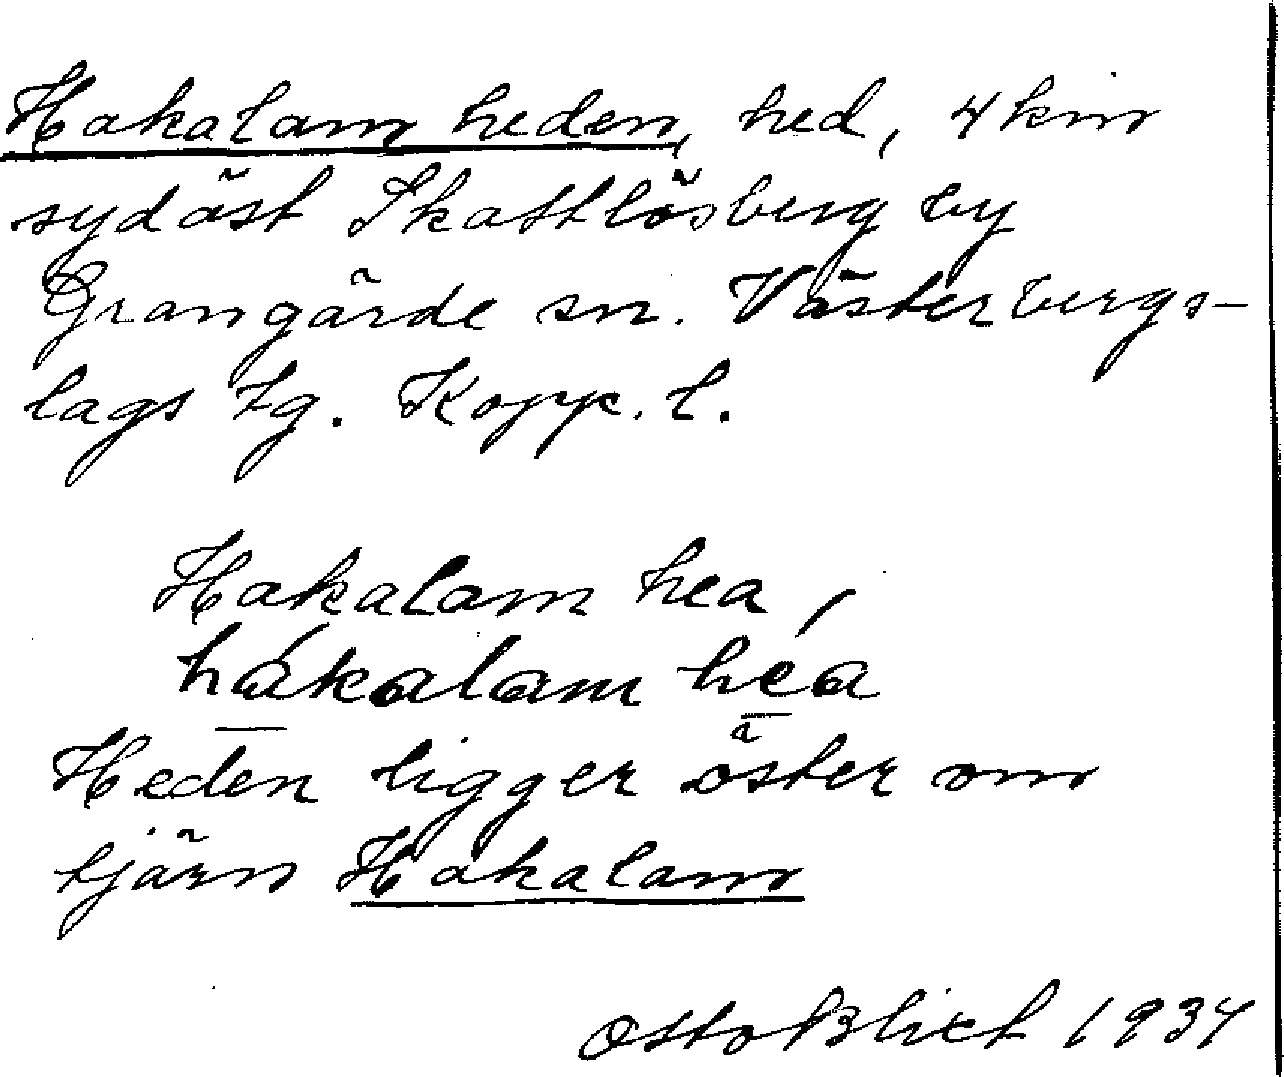 Hakalam heden, hed, 4 km
sydäst Skattlösberg by
Grangärde sn. Västerbergs-
lags tg. Kopp. l.
Hakalam hea,
hákalam héa
Heden ligger öster om
tjärn Hakalam
Otto Blixt 1934